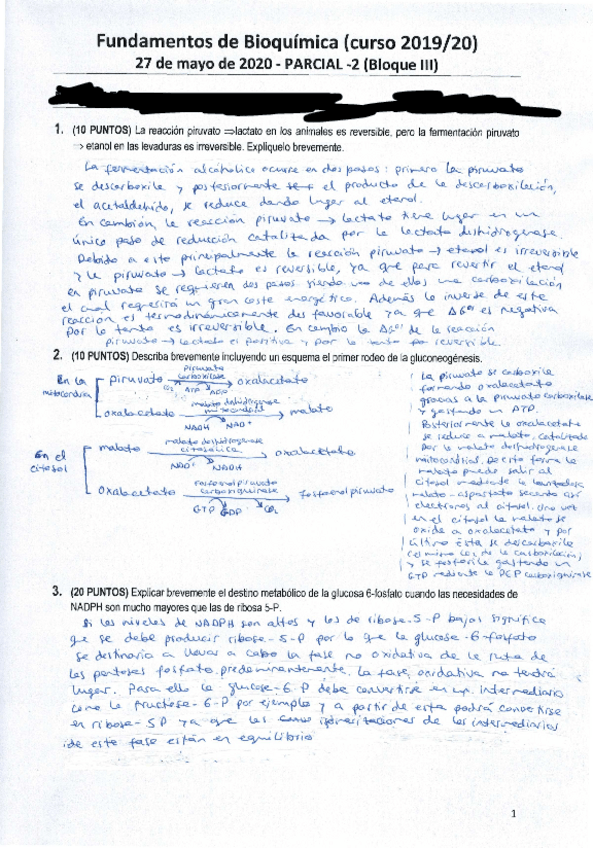 Fundamentos de Bioquímica (curso 2019/20)
27 de mayo de 2020 - PARCIAL -2 (Bloque III)
1. (10 PUNTOS) La reacción piruvato ⇒lactato en los animales es reversible, pero la fermentación piruvato
⇒ etanol en las levaduras es irreversible. Explíquelo brevemente.
La fermentación alcohólica ocurre en dos pasos: primero la piruvato
se descarboxila y posteriormente el producto de la descarboxilación,
el acetaldehido, se reduce dando lugar al etanol.
En cambión, la reacción piruvato → lactato tiene lugar en un
único paso de reducción catalizada por la lactato dishidrogenasa.
Debido a esto principalmente la reacción piruvato → etanol es irreversible
y la piruvato → lactato es reversible, ya que para revertir el etanol
en piruvato se requieren dos pasos siendo uno de ellos una carboxilación
el cual requerirá un gran coste energético. Además la inversa de este
reacción es termodinámicamente desfavorable ya que ΔG°' es negativa
por lo tanto es irreversible. En cambio la ΔG°' de la reacción
piruvato → lactato es positiva y por lo tanto reversible.
2. (10 PUNTOS) Describa brevemente incluyendo un esquema el primer rodeo de la gluconeogénesis.
En la mitocondria
piruvato piruvato carboxilasa → oxalacetato
CO₂ ATP ADP
oxalacetato malato deshidrogenasa mitocondrial → malato
NADH NAD⁺
En el citosol
malato malato deshidrogenasa citosólica → oxalacetato
NAD⁺ NADH
oxalacetato carboxiquinasa → fosfoenolpiruvato
GTP GDP CO₂
La piruvato se carboxila
formando oxalacetato
gracias a la piruvato carboxilasa
y gastando un ATP.
Posteriormente el oxalacetato
se reduce a malato, catalizada
por la malato deshidrogenasa
mitocondrial. De esta forma la
malato puede salir al
citosol mediante la lanzadera
malato-aspartato secando así
electrones al citosol. Una vez
en el citosol la malato se
oxida a oxalacetato y por
último ésta se descarboxila
(el mismo CO₂ de la carboxilación)
y se fosforila gastando un
GTP mediante la PEP carboxiquinasa
3. (20 PUNTOS) Explicar brevemente el destino metabólico de la glucosa 6-fosfato cuando las necesidades de
NADPH son mucho mayores que las de ribosa 5-P.
Si los niveles de NADPH son altos y los de ribosa-5-P bajos significa
que se debe producir ribosa-5-P por lo que la glucosa-6-fosfato
se destinaría a llevar a cabo la fase no oxidativa de la ruta de
las pentosas fosfato predominantemente. La fase oxidativa no tendrá
lugar. Para ello la glucosa-6-P debe convertirse en un intermediario
como la fructosa-6-P por ejemplo y a partir de esta podrá convertirse
en ribosa-5P ya que las concentraciones de los intermediarios
de este fase están en equilibrio
1